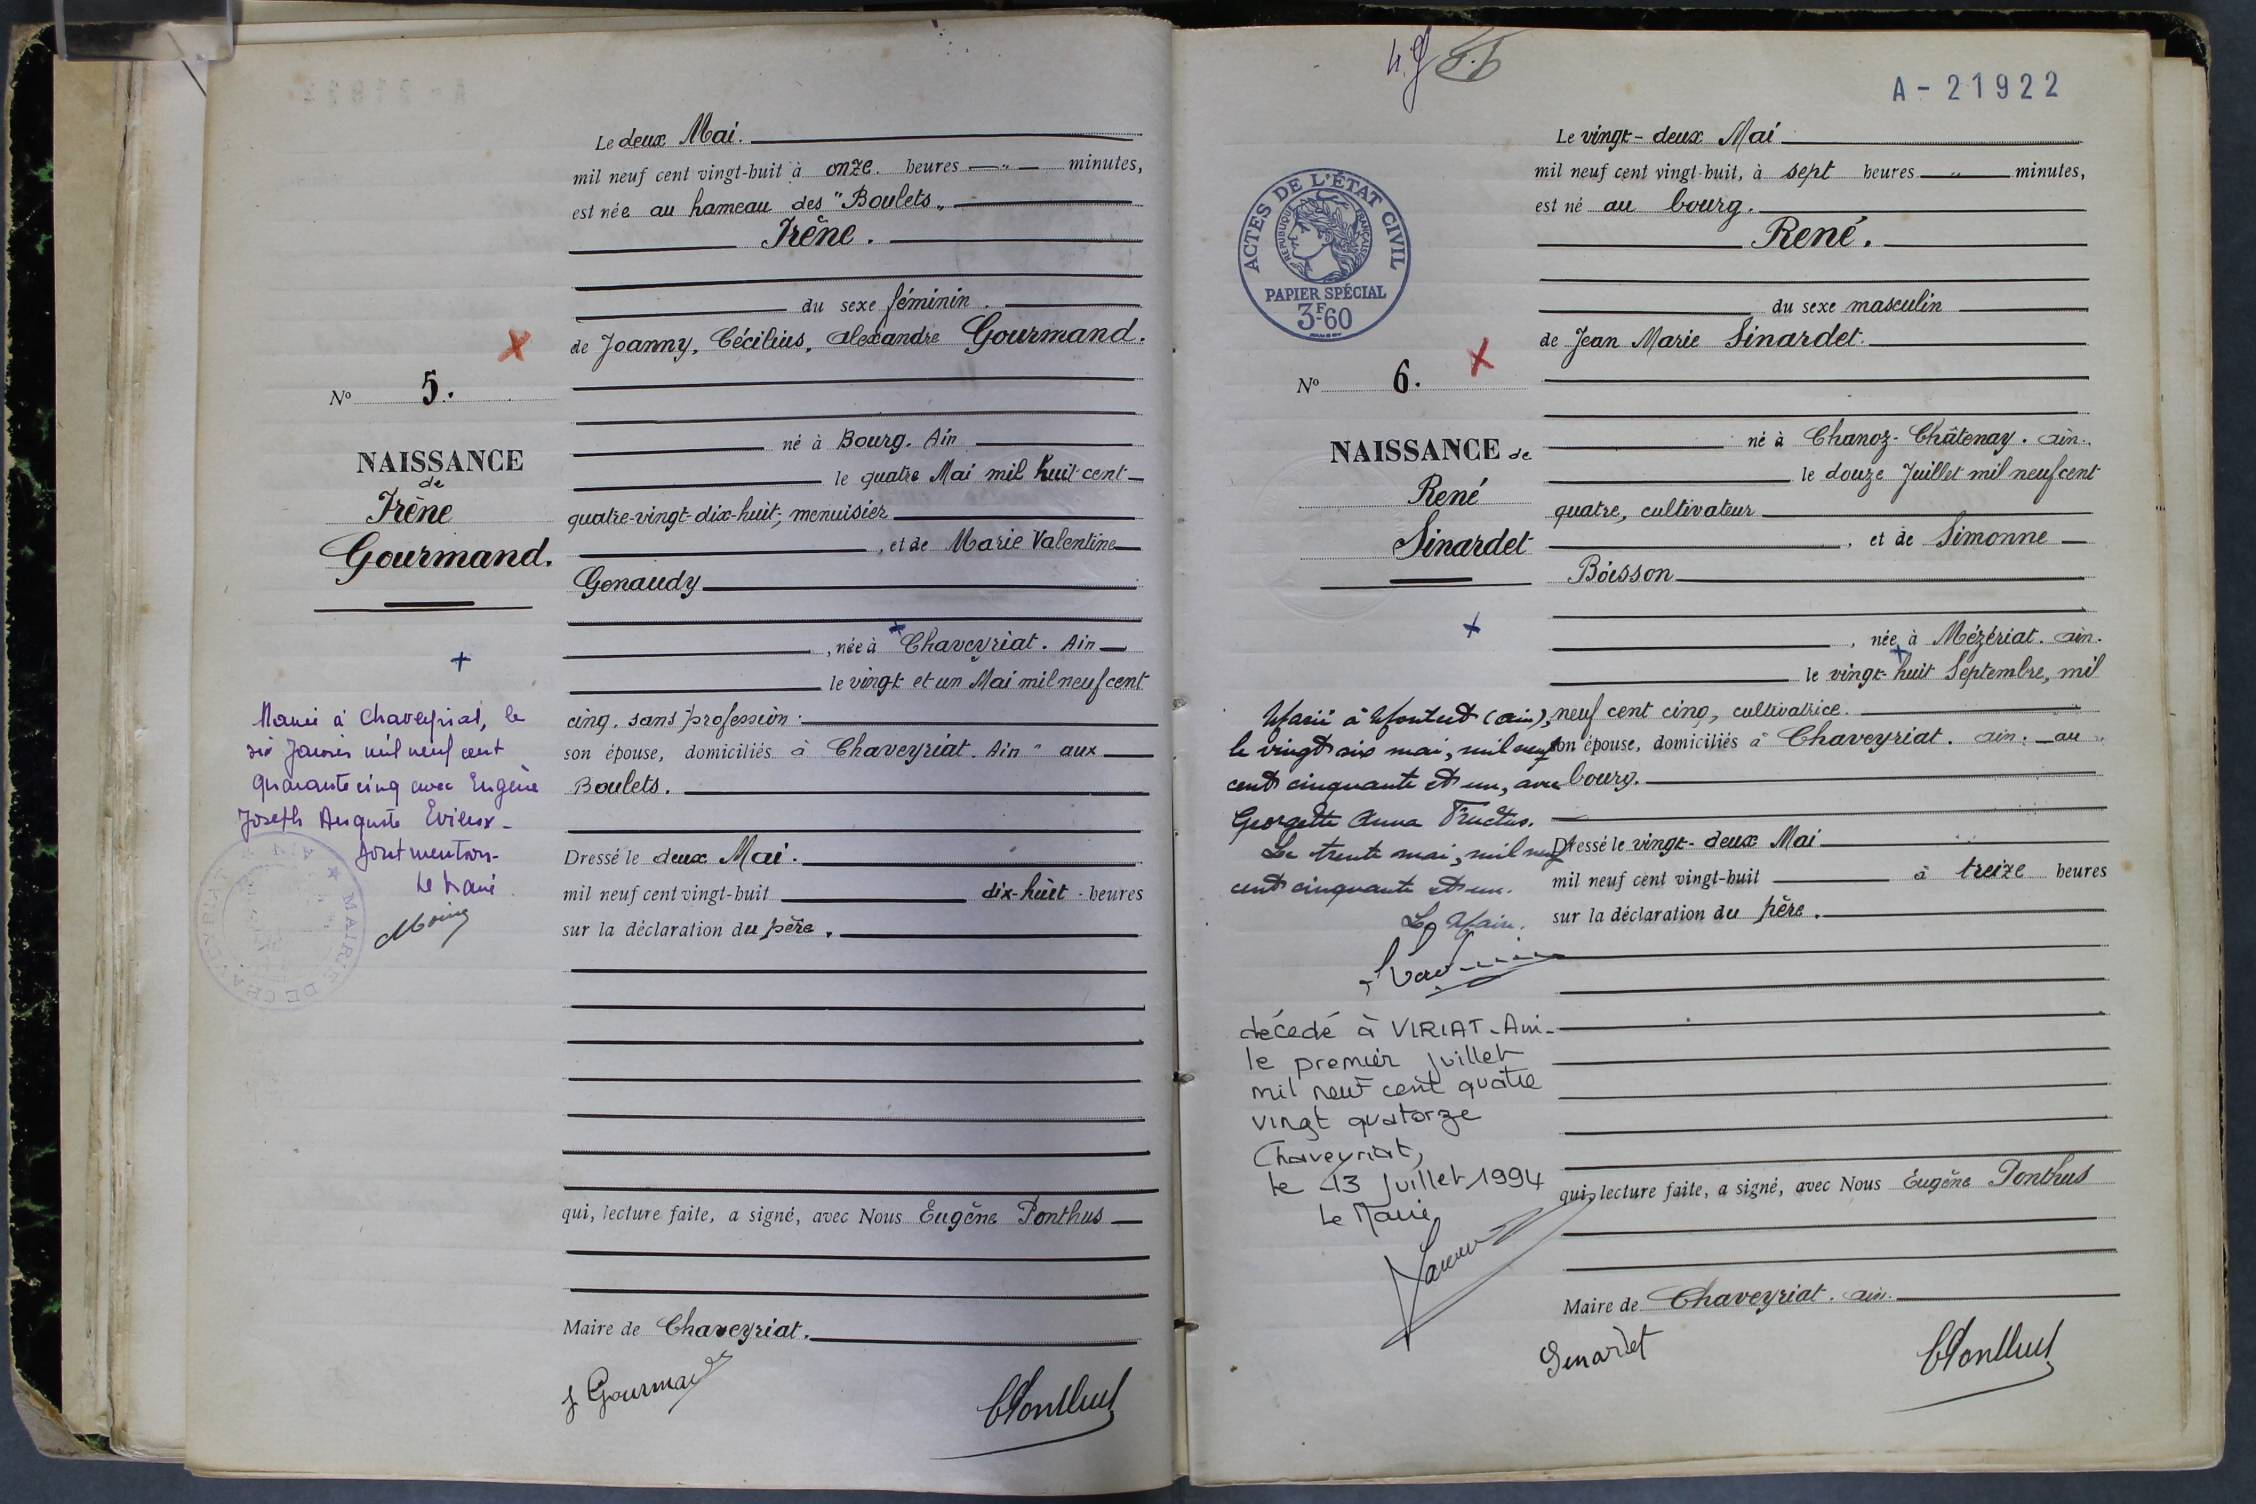 Le deux Mai.
mil neuf cent vingt-huit à onze heures — " — minutes,
est née au hameau des "Boulets"
Irène.
du sexe féminin.
de Joanny, Cécilius, Alexandre Gourmand.
né à Bourg. Ain
le quatre Mai mil huit cent
quatre-vingt-dix-huit, menuisier
, et de Marie Valentine
Genaudy
, née à Chaveyriat. Ain
le vingt et un Mai mil neuf cent
cinq, sans profession
son épouse, domiciliés à Chaveyriat. Ain " aux
Boulets.
Dressé le deux Mai.
mil neuf cent vingt-huit dix-huit heures
sur la déclaration du père.
qui, lecture faite, a signé, avec Nous Eugène Ponthus
Maire de Chaveyriat.
J Gourmand
EPonthus
No 5.
NAISSANCE
de
Irène
Gourmand.
Mariée à Chaveyriat, le
six Janvier mil neuf cent
quarante cinq avec Eugène
Joseph Auguste Evieux -
dont mention -
Le Maire.
MAIRIE DE CHAVEYRIAT ★ AIN ★
A-21922
ACTES DE L'ÉTAT CIVIL
RÉPUBLIQUE FRANÇAISE
PAPIER SPÉCIAL
3F60
Le vingt-deux Mai
mil neuf cent vingt-huit, à sept heures " minutes,
est né au bourg.
René.
du sexe masculin
de Jean Marie Sinardet.
né à Chanoz-Châtenay. ain.
le douze Juillet mil neuf cent
quatre, cultivateur
, et de Simonne
Boisson
, née à Mézériat. ain.
le vingt-huit Septembre, mil
neuf cent cinq, cultivatrice.
son épouse, domiciliés à Chaveyriat. ain. au
bourg.
Dressé le vingt-deux Mai
mil neuf cent vingt-huit à treize heures
sur la déclaration du père.
qui, lecture faite, a signé, avec Nous Eugène Ponthus
Maire de Chaveyriat. ain.
Sinardet
EPonthus
No 6.
NAISSANCE de
René
Sinardet
Marié à Montcet (ain),
le vingt six mai, mil neuf
cent cinquante et un, avec
Georgette Anna Fructus.
Le trente mai, mil neuf
cent cinquante et un.
Le Maire.
décédé à VIRIAT - Ain -
le premier juillet
mil neuf cent quatre
vingt quatorze
Chaveyriat,
le 13 juillet 1994
Le Maire